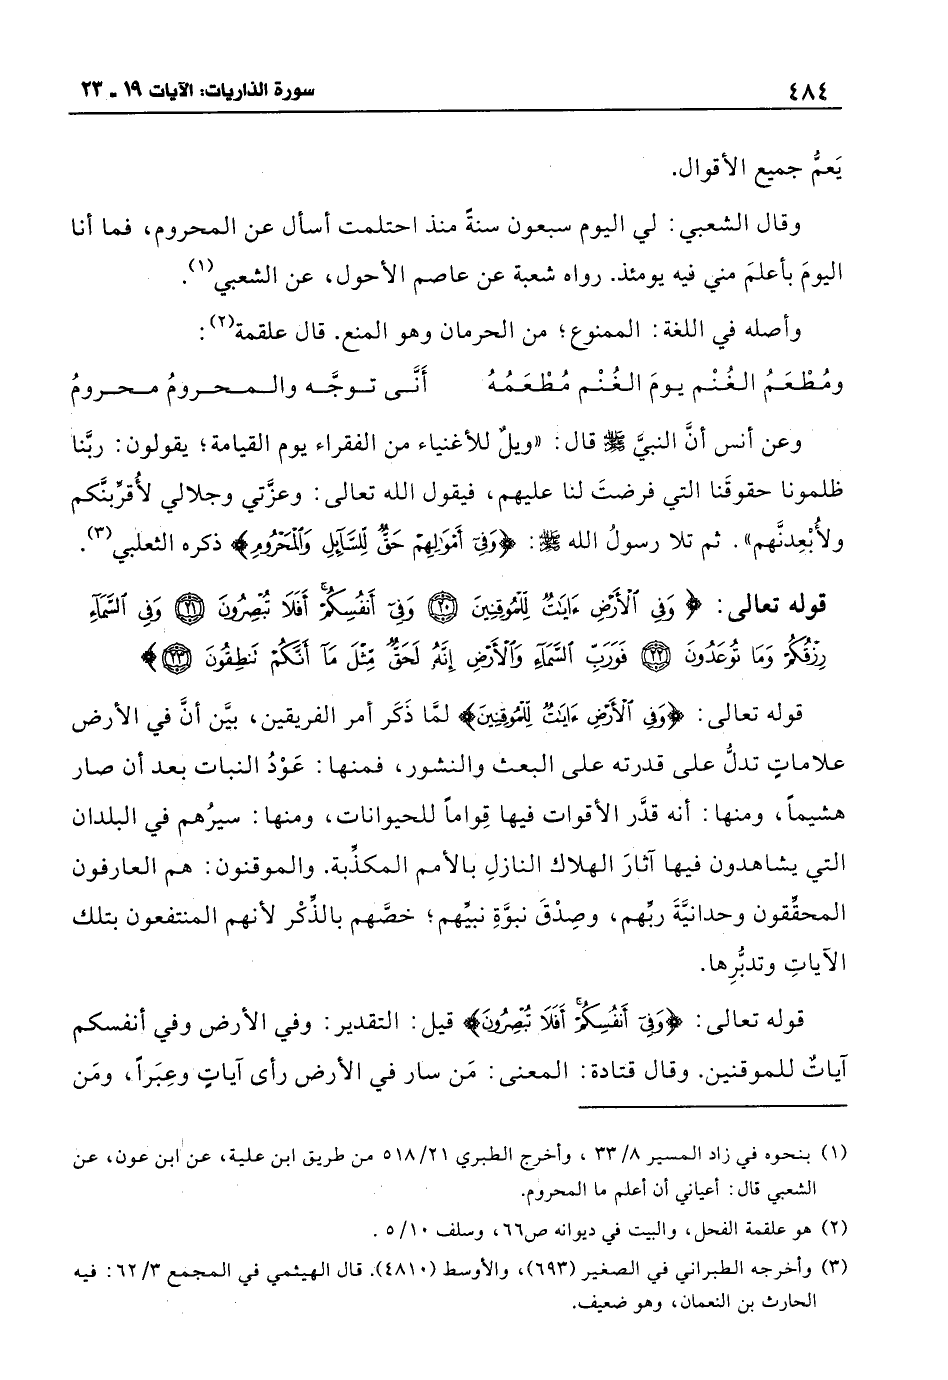 ٤٨٤
سورة الذاريات: الآيات ١٩ - ٢٣
يَعمُّ جميع الأقوال.
وقال الشعبي: لي اليوم سبعون سنةً منذ احتلمت أسأل عن المحروم، فما أنا
اليومَ بأعلمَ مني فيه يومئذ. رواه شعبة عن عاصم الأحول، عن الشعبي(١).
وأصله في اللغة: الممنوع؛ من الحرمان وهو المنع. قال علقمة(٢):
ومُطْعَمُ الغُنْم يومَ الغُنْم مُطْعَمُهُ أَنَّى توجَّه والمحرومُ محرومُ
وعن أنس أنَّ النبيَّ ﷺ قال: «ويلٌ للأغنياء من الفقراء يوم القيامة؛ يقولون: ربَّنا
ظلمونا حقوقَنا التي فرضتَ لنا عليهم، فيقول الله تعالى: وعزَّتي وجلالي لأُقرِّبنَّكم
ولأُبْعِدنَّهم». ثم تلا رسولُ الله ﷺ: ﴿وَفِىٓ أَمْوَٰلِهِمْ حَقٌّ لِّلسَّآئِلِ وَٱلْمَحْرُومِ﴾ ذكره الثعلبي(٣).
قوله تعالى: ﴿وَفِى ٱلْأَرْضِ ءَايَٰتٌ لِّلْمُوقِنِينَ ۝٢٠ وَفِىٓ أَنفُسِكُمْ ۚ أَفَلَا تُبْصِرُونَ ۝٢١ وَفِى ٱلسَّمَآءِ
رِزْقُكُمْ وَمَا تُوعَدُونَ ۝٢٢ فَوَرَبِّ ٱلسَّمَآءِ وَٱلْأَرْضِ إِنَّهُۥ لَحَقٌّ مِّثْلَ مَآ أَنَّكُمْ تَنطِقُونَ ۝٢٣﴾
قوله تعالى: ﴿وَفِى ٱلْأَرْضِ ءَايَٰتٌ لِّلْمُوقِنِينَ﴾ لمَّا ذَكَر أمر الفريقين، بيَّن أنَّ في الأرض
علاماتٍ تدلُّ على قدرته على البعث والنشور، فمنها: عَوْدُ النبات بعد أن صار
هشيماً، ومنها: أنه قدَّر الأقوات فيها قِواماً للحيوانات، ومنها: سيرُهم في البلدان
التي يشاهدون فيها آثارَ الهلاك النازلِ بالأمم المكذِّبة. والموقنون: هم العارفون
المحقِّقون وحدانيَّةَ ربِّهم، وصِدْقَ نبوَّةِ نبيِّهم؛ خصَّهم بالذِّكْر لأنهم المنتفعون بتلك
الآياتِ وتدبُّرِها.
قوله تعالى: ﴿وَفِىٓ أَنفُسِكُمْ ۚ أَفَلَا تُبْصِرُونَ﴾ قيل: التقدير: وفي الأرض وفي أنفسكم
آياتٌ للموقنين. وقال قتادة: المعنى: مَن سار في الأرض رأى آياتٍ وعِبَراً، ومَن
(١) بنحوه في زاد المسير ٨/ ٣٣ ، وأخرج الطبري ٢١/ ٥١٨ من طريق ابن علية، عن ابن عون، عن
الشعبي قال: أعياني أن أعلم ما المحروم.
(٢) هو علقمة الفحل، والبيت في ديوانه ص٦٦، وسلف ١٠/ ٥ .
(٣) وأخرجه الطبراني في الصغير (٦٩٣)، والأوسط (٤٨١٠). قال الهيثمي في المجمع ٣/ ٦٢: فيه
الحارث بن النعمان، وهو ضعيف.